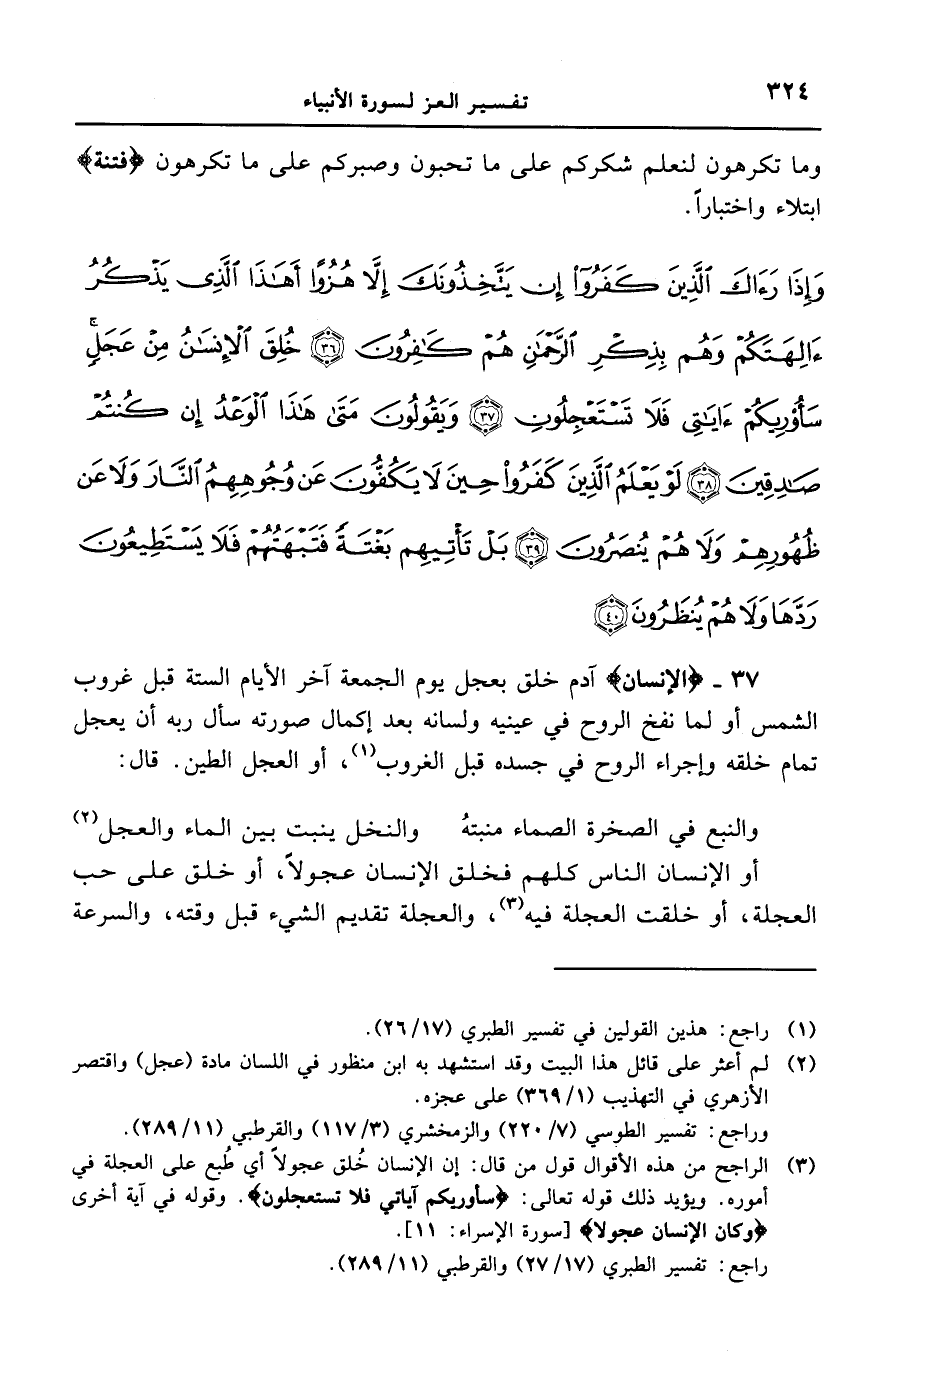 ٣٢٤
تفسير العز لسورة الأنبياء
وما تكرهون لنعلم شكركم على ما تحبون وصبركم على ما تكرهون ﴿فتنة﴾
ابتلاء واختباراً.
وَإِذَا رَءَاكَ ٱلَّذِينَ كَفَرُوٓا۟ إِن يَتَّخِذُونَكَ إِلَّا هُزُوًا أَهَٰذَا ٱلَّذِى يَذْكُرُ
ءَالِهَتَكُمْ وَهُم بِذِكْرِ ٱلرَّحْمَٰنِ هُمْ كَٰفِرُونَ ﴿٣٦﴾ خُلِقَ ٱلْإِنسَٰنُ مِنْ عَجَلٍۚ
سَأُو۟رِيكُمْ ءَايَٰتِى فَلَا تَسْتَعْجِلُونِ ﴿٣٧﴾ وَيَقُولُونَ مَتَىٰ هَٰذَا ٱلْوَعْدُ إِن كُنتُمْ
صَٰدِقِينَ ﴿٣٨﴾ لَوْ يَعْلَمُ ٱلَّذِينَ كَفَرُوا۟ حِينَ لَا يَكُفُّونَ عَن وُجُوهِهِمُ ٱلنَّارَ وَلَا عَن
ظُهُورِهِمْ وَلَا هُمْ يُنصَرُونَ ﴿٣٩﴾ بَلْ تَأْتِيهِم بَغْتَةً فَتَبْهَتُهُمْ فَلَا يَسْتَطِيعُونَ
رَدَّهَا وَلَا هُمْ يُنظَرُونَ ﴿٤٠﴾
٣٧ ـ ﴿الإنسان﴾ آدم خلق بعجل يوم الجمعة آخر الأيام الستة قبل غروب
الشمس أو لما نفخ الروح في عينيه ولسانه بعد إكمال صورته سأل ربه أن يعجل
تمام خلقه وإجراء الروح في جسده قبل الغروب(١)، أو العجل الطين. قال:
والنبع في الصخرة الصماء منبتهُ والنخل ينبت بين الماء والعجل(٢)
أو الإنسان الناس كلهم فخلق الإنسان عجولاً، أو خلق على حب
العجلة، أو خلقت العجلة فيه(٣)، والعجلة تقديم الشيء قبل وقته، والسرعة
(١) راجع: هذين القولين في تفسير الطبري (٢٦/١٧).
(٢) لم أعثر على قائل هذا البيت وقد استشهد به ابن منظور في اللسان مادة (عجل) واقتصر
الأزهري في التهذيب (٣٦٩/١) على عجزه.
وراجع: تفسير الطوسي (٢٢٠/٧) والزمخشري (١١٧/٣) والقرطبي (٢٨٩/١١).
(٣) الراجح من هذه الأقوال قول من قال: إن الإنسان خُلق عجولاً أي طُبع على العجلة في
أموره. ويؤيد ذلك قوله تعالى: ﴿سأوريكم آياتي فلا تستعجلون﴾. وقوله في آية أخرى
﴿وكان الإنسان عجولا﴾ [سورة الإسراء: ١١].
راجع: تفسير الطبري (٢٧/١٧) والقرطبي (٢٨٩/١١).